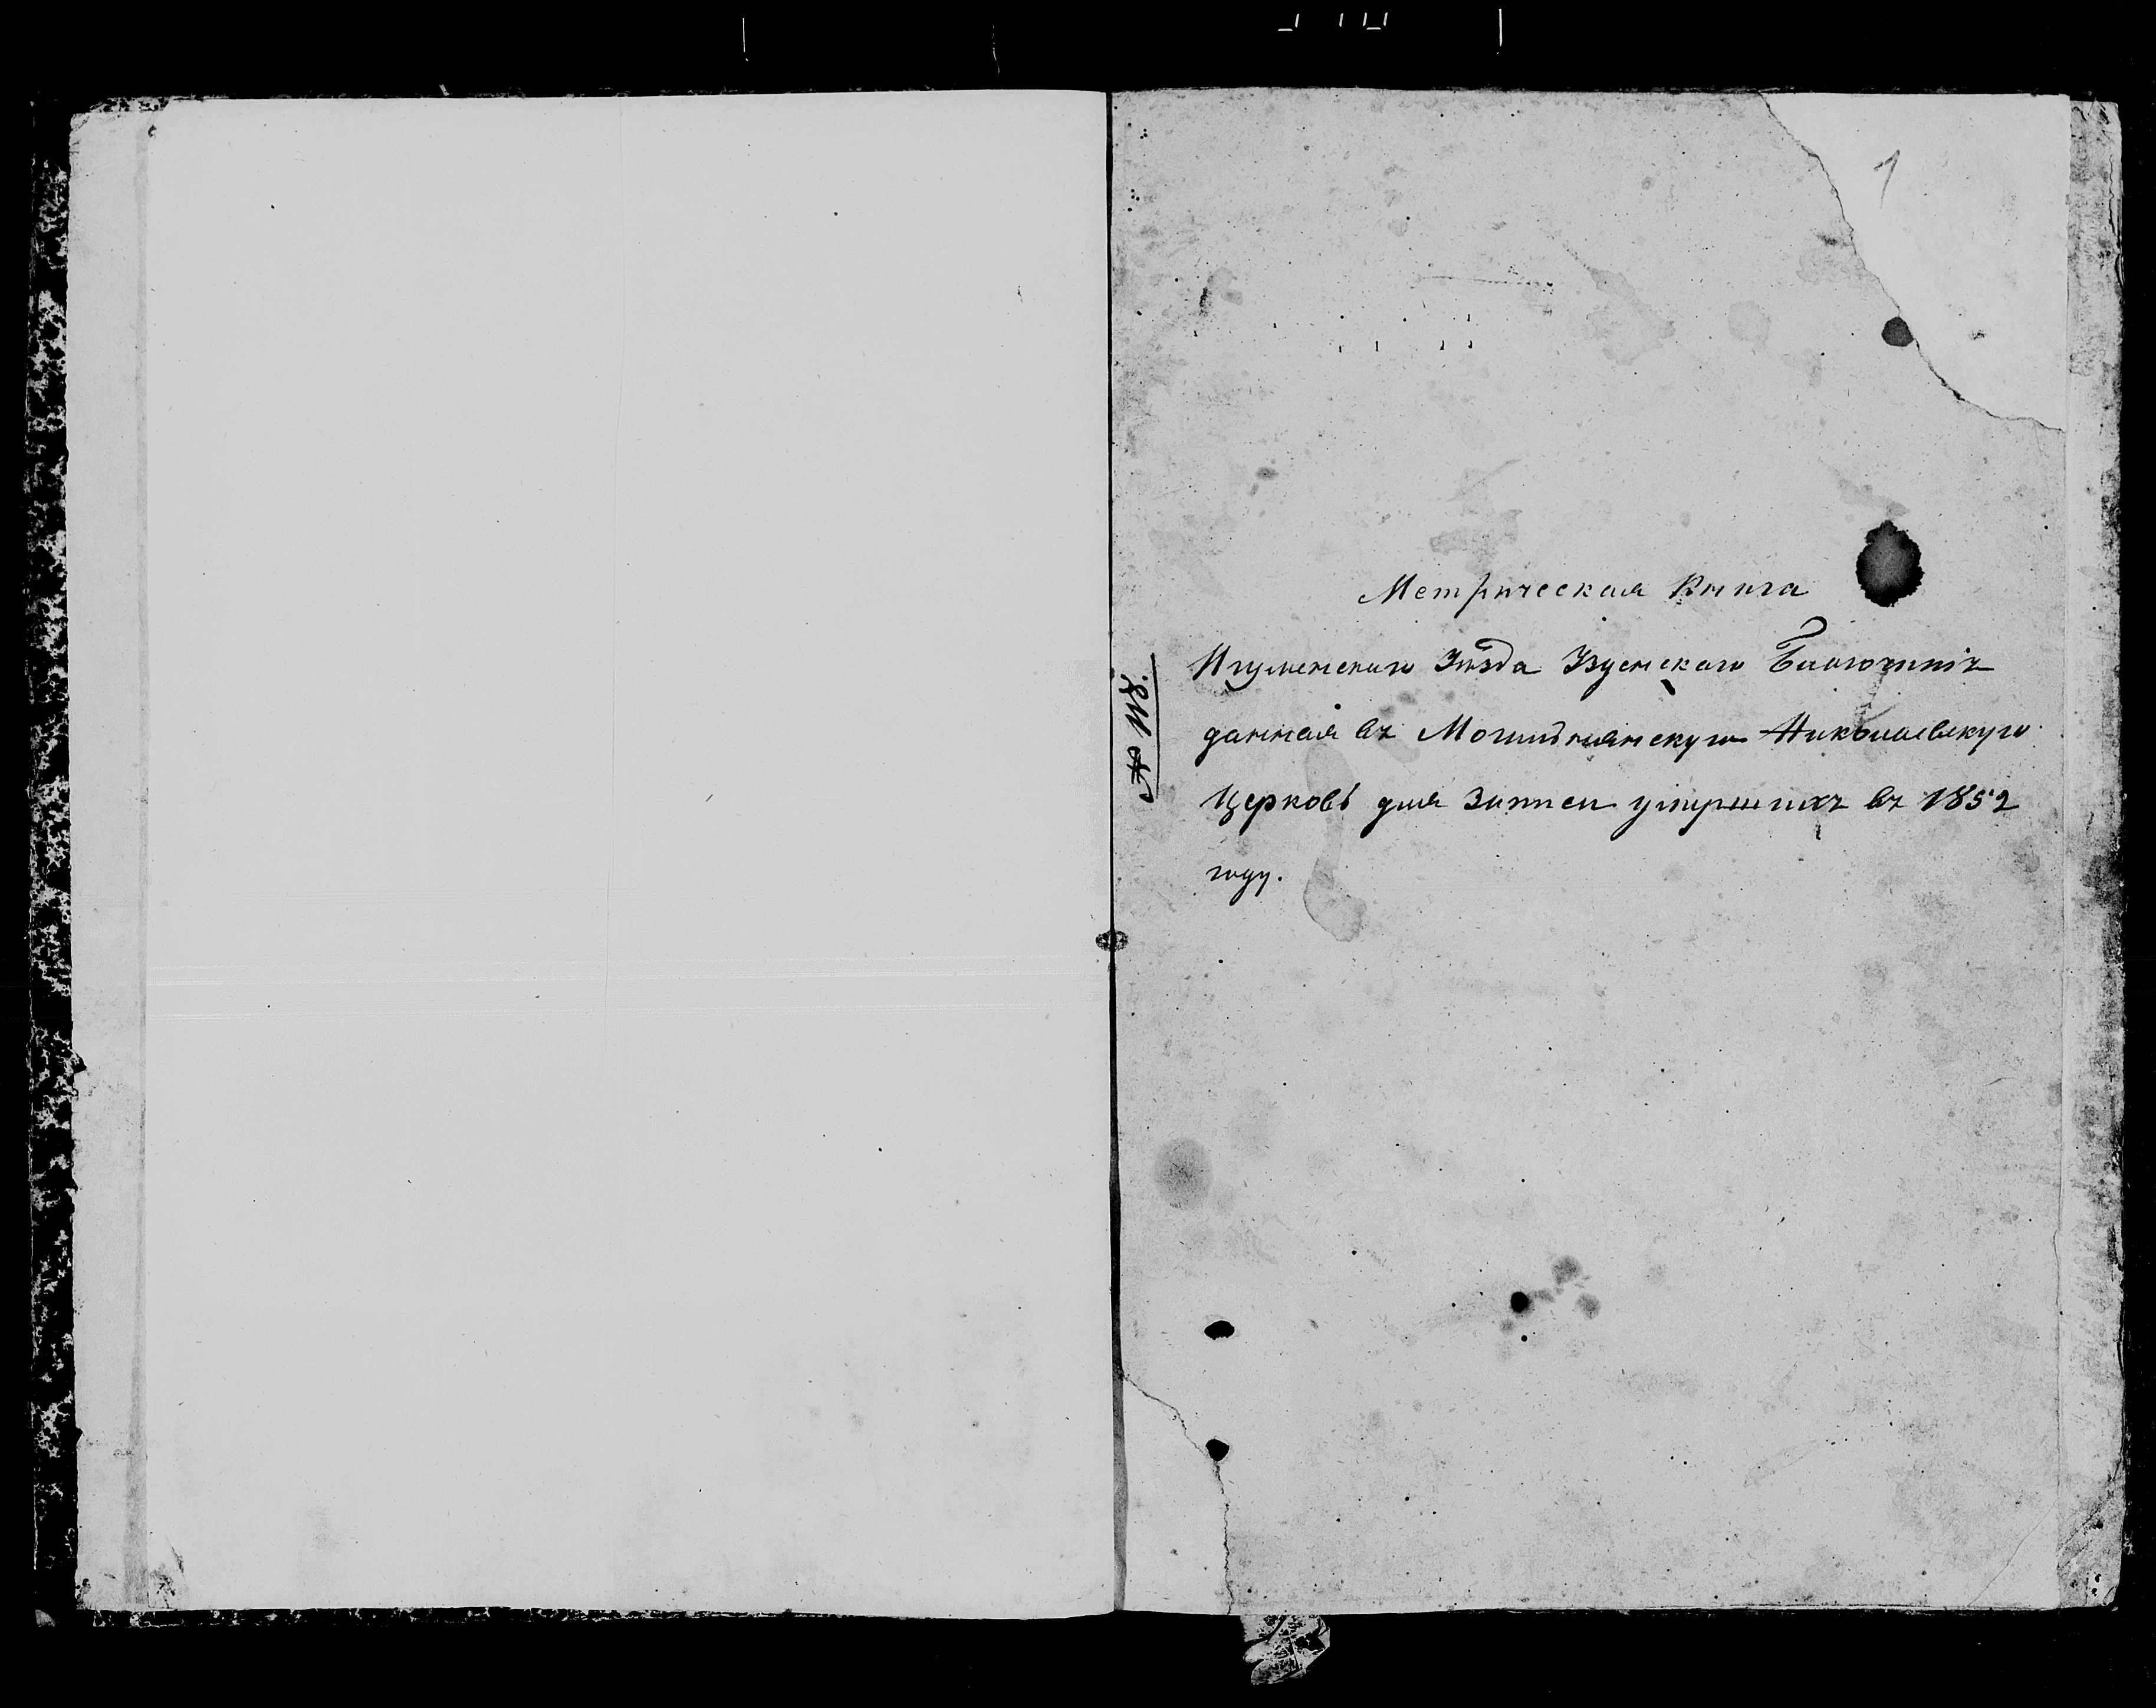 1
Метрическая Книга
Игуменскаго Уѣзда Узденскаго Благочинія
данная въ Могильнянскую Николаевскую
Церковь для записи умершихъ въ 1852
году.